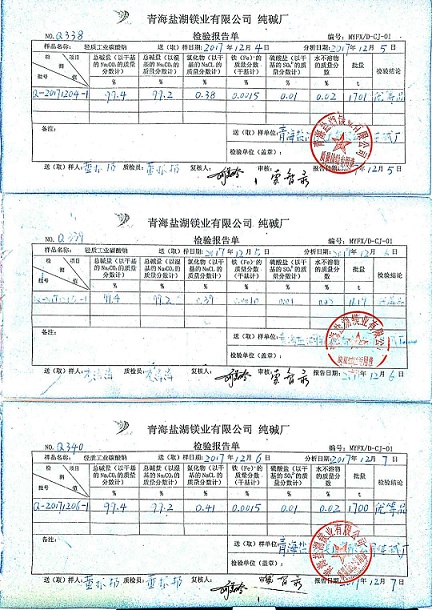 青海盐湖镁业有限公司 纯碱厂
NO. Q338 检验报告单 编号: MYFX/D-CJ-01
样品名称: 轻质工业碳酸钠 送(取)样日期: 2017年12月4日 分析日期: 2017年12月5日
检测项目 批号 总碱量(以干基的Na₂CO₃的质量分数计) 总碱量(以湿基的Na₂CO₃的质量分数计) 氯化物(以干基的NaCl的质量分数计) 铁(Fe)的质量分数(干基计) 硫酸盐(以干基的SO₄²⁻的质量分数计) 水不溶物的质量分数 批量 检验结论
% % % % % % t
Q-20171204-1 99.4 99.2 0.38 0.0015 0.01 0.02 1701 优等品
备注: 送(取)样单位:
检验单位(盖章):
送(取)样人: 质检员: 复核人: 审核: 12月5日
青海盐湖镁业有限公司
青海盐湖镁业有限公司 纯碱厂
NO. Q339 检验报告单 编号: MYFX/D-CJ-01
样品名称: 轻质工业碳酸钠 送(取)样日期: 2017年12月5日 分析日期: 2017年12月6日
检测项目 批号 总碱量(以干基的Na₂CO₃的质量分数计) 总碱量(以湿基的Na₂CO₃的质量分数计) 氯化物(以干基的NaCl的质量分数计) 铁(Fe)的质量分数(干基计) 硫酸盐(以干基的SO₄²⁻的质量分数计) 水不溶物的质量分数 批量 检验结论
% % % % % % t
99.4 99.2 0.39 0.01
备注: 送(取)样单位:
检验单位(盖章):
送(取)样人: 质检员: 复核人: 审核: 报告日期: 2017年12月6日
青海盐湖镁业有限公司
青海盐湖镁业有限公司 纯碱厂
NO. Q340 检验报告单 编号: MYFX/D-CJ-01
样品名称: 轻质工业碳酸钠 送(取)样日期: 2017年12月6日 分析日期: 2017年12月7日
检测项目 批号 总碱量(以干基的Na₂CO₃的质量分数计) 总碱量(以湿基的Na₂CO₃的质量分数计) 氯化物(以干基的NaCl的质量分数计) 铁(Fe)的质量分数(干基计) 硫酸盐(以干基的SO₄²⁻的质量分数计) 水不溶物的质量分数 批量 检验结论
% % % % % % t
Q-20171206-1 99.4 99.2 0.41 0.0015 0.01 0.02 1700 优等品
备注: 送(取)样单位:
检验单位(盖章):
送(取)样人: 质检员: 复核人: 报告日期: 2017年12月7日
青海盐湖镁业有限公司